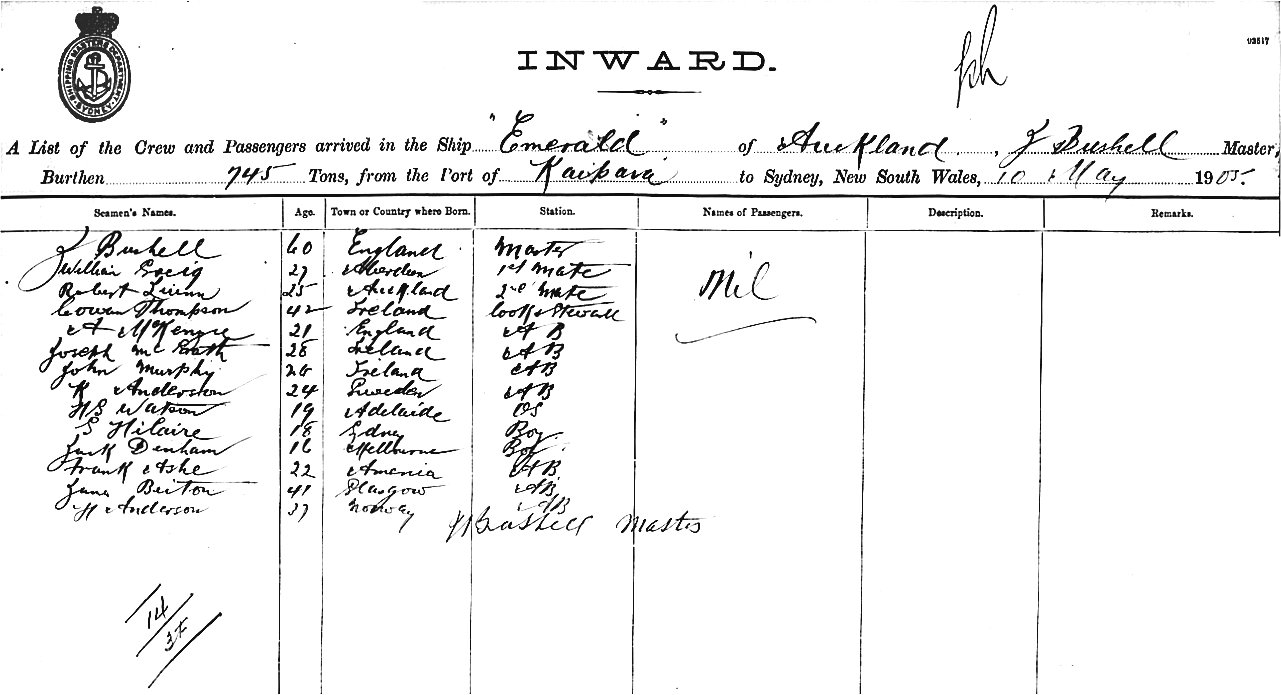 SHIPPING MASTERS DEPARTMENT SYDNEY
03517
INWARD.
A List of the Crew and Passengers arrived in the Ship "Emerald" of Auckland, J Bushell Master,
Burthen 745 Tons, from the Port of Kaipara to Sydney, New South Wales, 10 May 1905.
Seamen's Names. Age. Town or Country where Born. Station. Names of Passengers. Description. Remarks.
J Bushell 60 England Master
William Greig 27 Aberdeen 1st Mate
Nil
Robert Quinn 25 Auckland 2nd Mate
Cowan Thompson 42 Ireland Cook & Steward
A McKenzie 21 England AB
Joseph McGrath 28 Ireland AB
John Murphy 26 Ireland AB
K Anderson 24 Sweden AB
HG Watson 19 Adelaide OS
S Hilaire 18 Sydney Boy
Jack Denham 16 Melbourne Boy
Frank Ashe 22 Amenia AB
Beiton 41 Glasgow AB
H Anderson 37 Norway AB
J Bushell Master
14